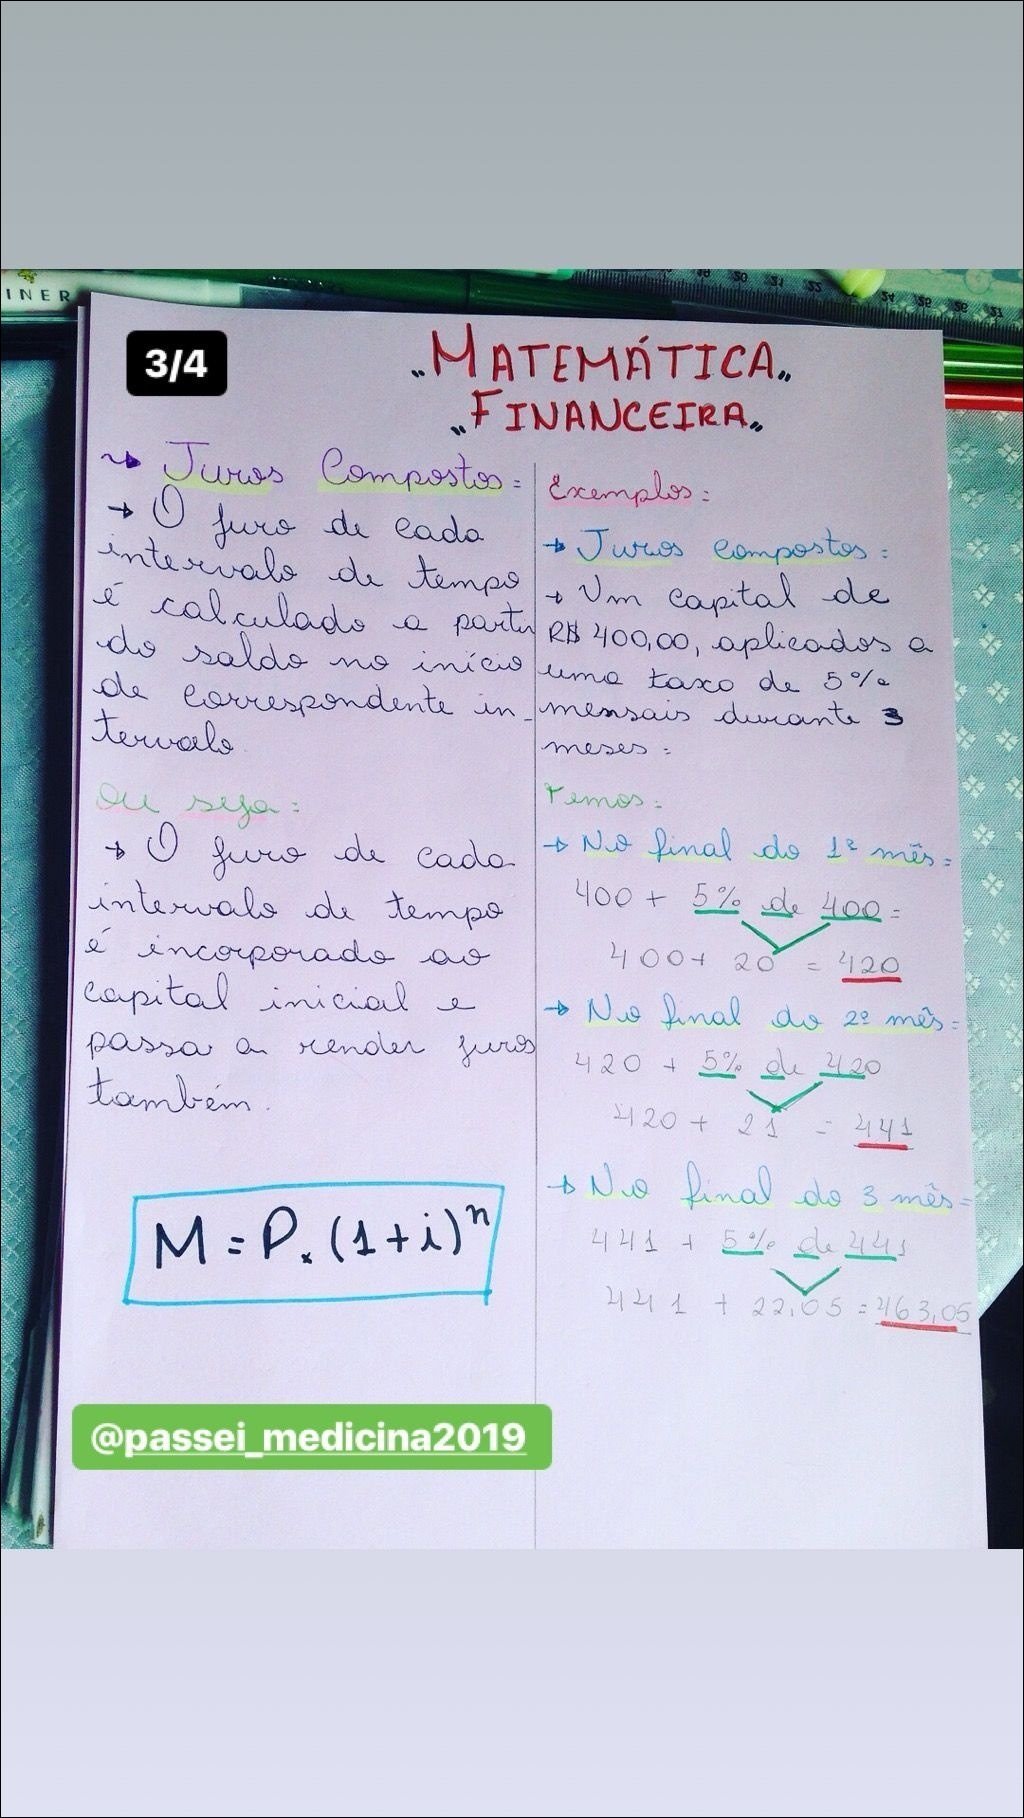 INER
19 20 21 22 24 25 26 27
3/4
"MATEMÁTICA"
"FINANCEIRA"
Juros Compostos:
→ O juro de cada
intervalo de tempo
é calculado a partir
do saldo no início
de correspondente in-
tervalo.
Ou seja:
→ O juro de cada
intervalo de tempo
é incorporado ao
capital inicial e
passa a render juros
também.
M = P.(1+i)ⁿ
Exemplos:
→ Juros compostos:
→ Um capital de
R$ 400,00, aplicados a
uma taxa de 5%
mensais durante 3
meses:
Temos:
→ No final do 1º mês:
400 + 5% de 400 =
400 + 20 = 420
→ No final do 2º mês:
420 + 5% de 420
420 + 21 = 441
→ No final do 3 mês=
441 + 5% de 441
441 + 22,05 = 463,05
@passei_medicina2019